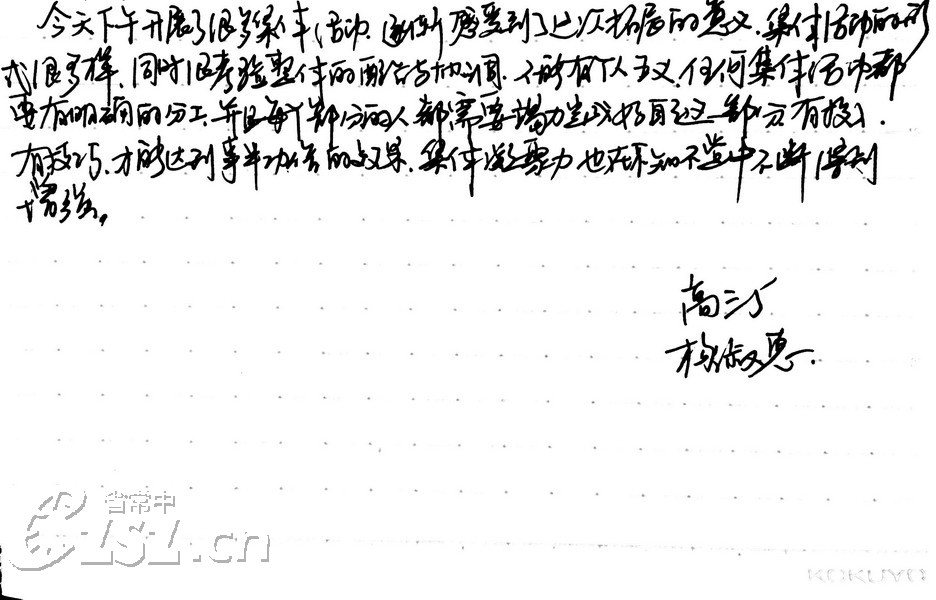 今天下午开展了很多集体活动,逐渐感受到了这次拓展的意义,集体活动的形
式很多样,同时很考验整体的配合与协调,不能有个人主义,任何集体活动都
要有明确的分工,并且每个部分的人都需要竭力完成好自己这一部分,有投入,
有技巧,才能达到事半功倍的效果,集体凝聚力也在不知不觉中不断得到
增强。
高三丁
杨淑惠
省常中
ZSZ.cn
KOKUYO